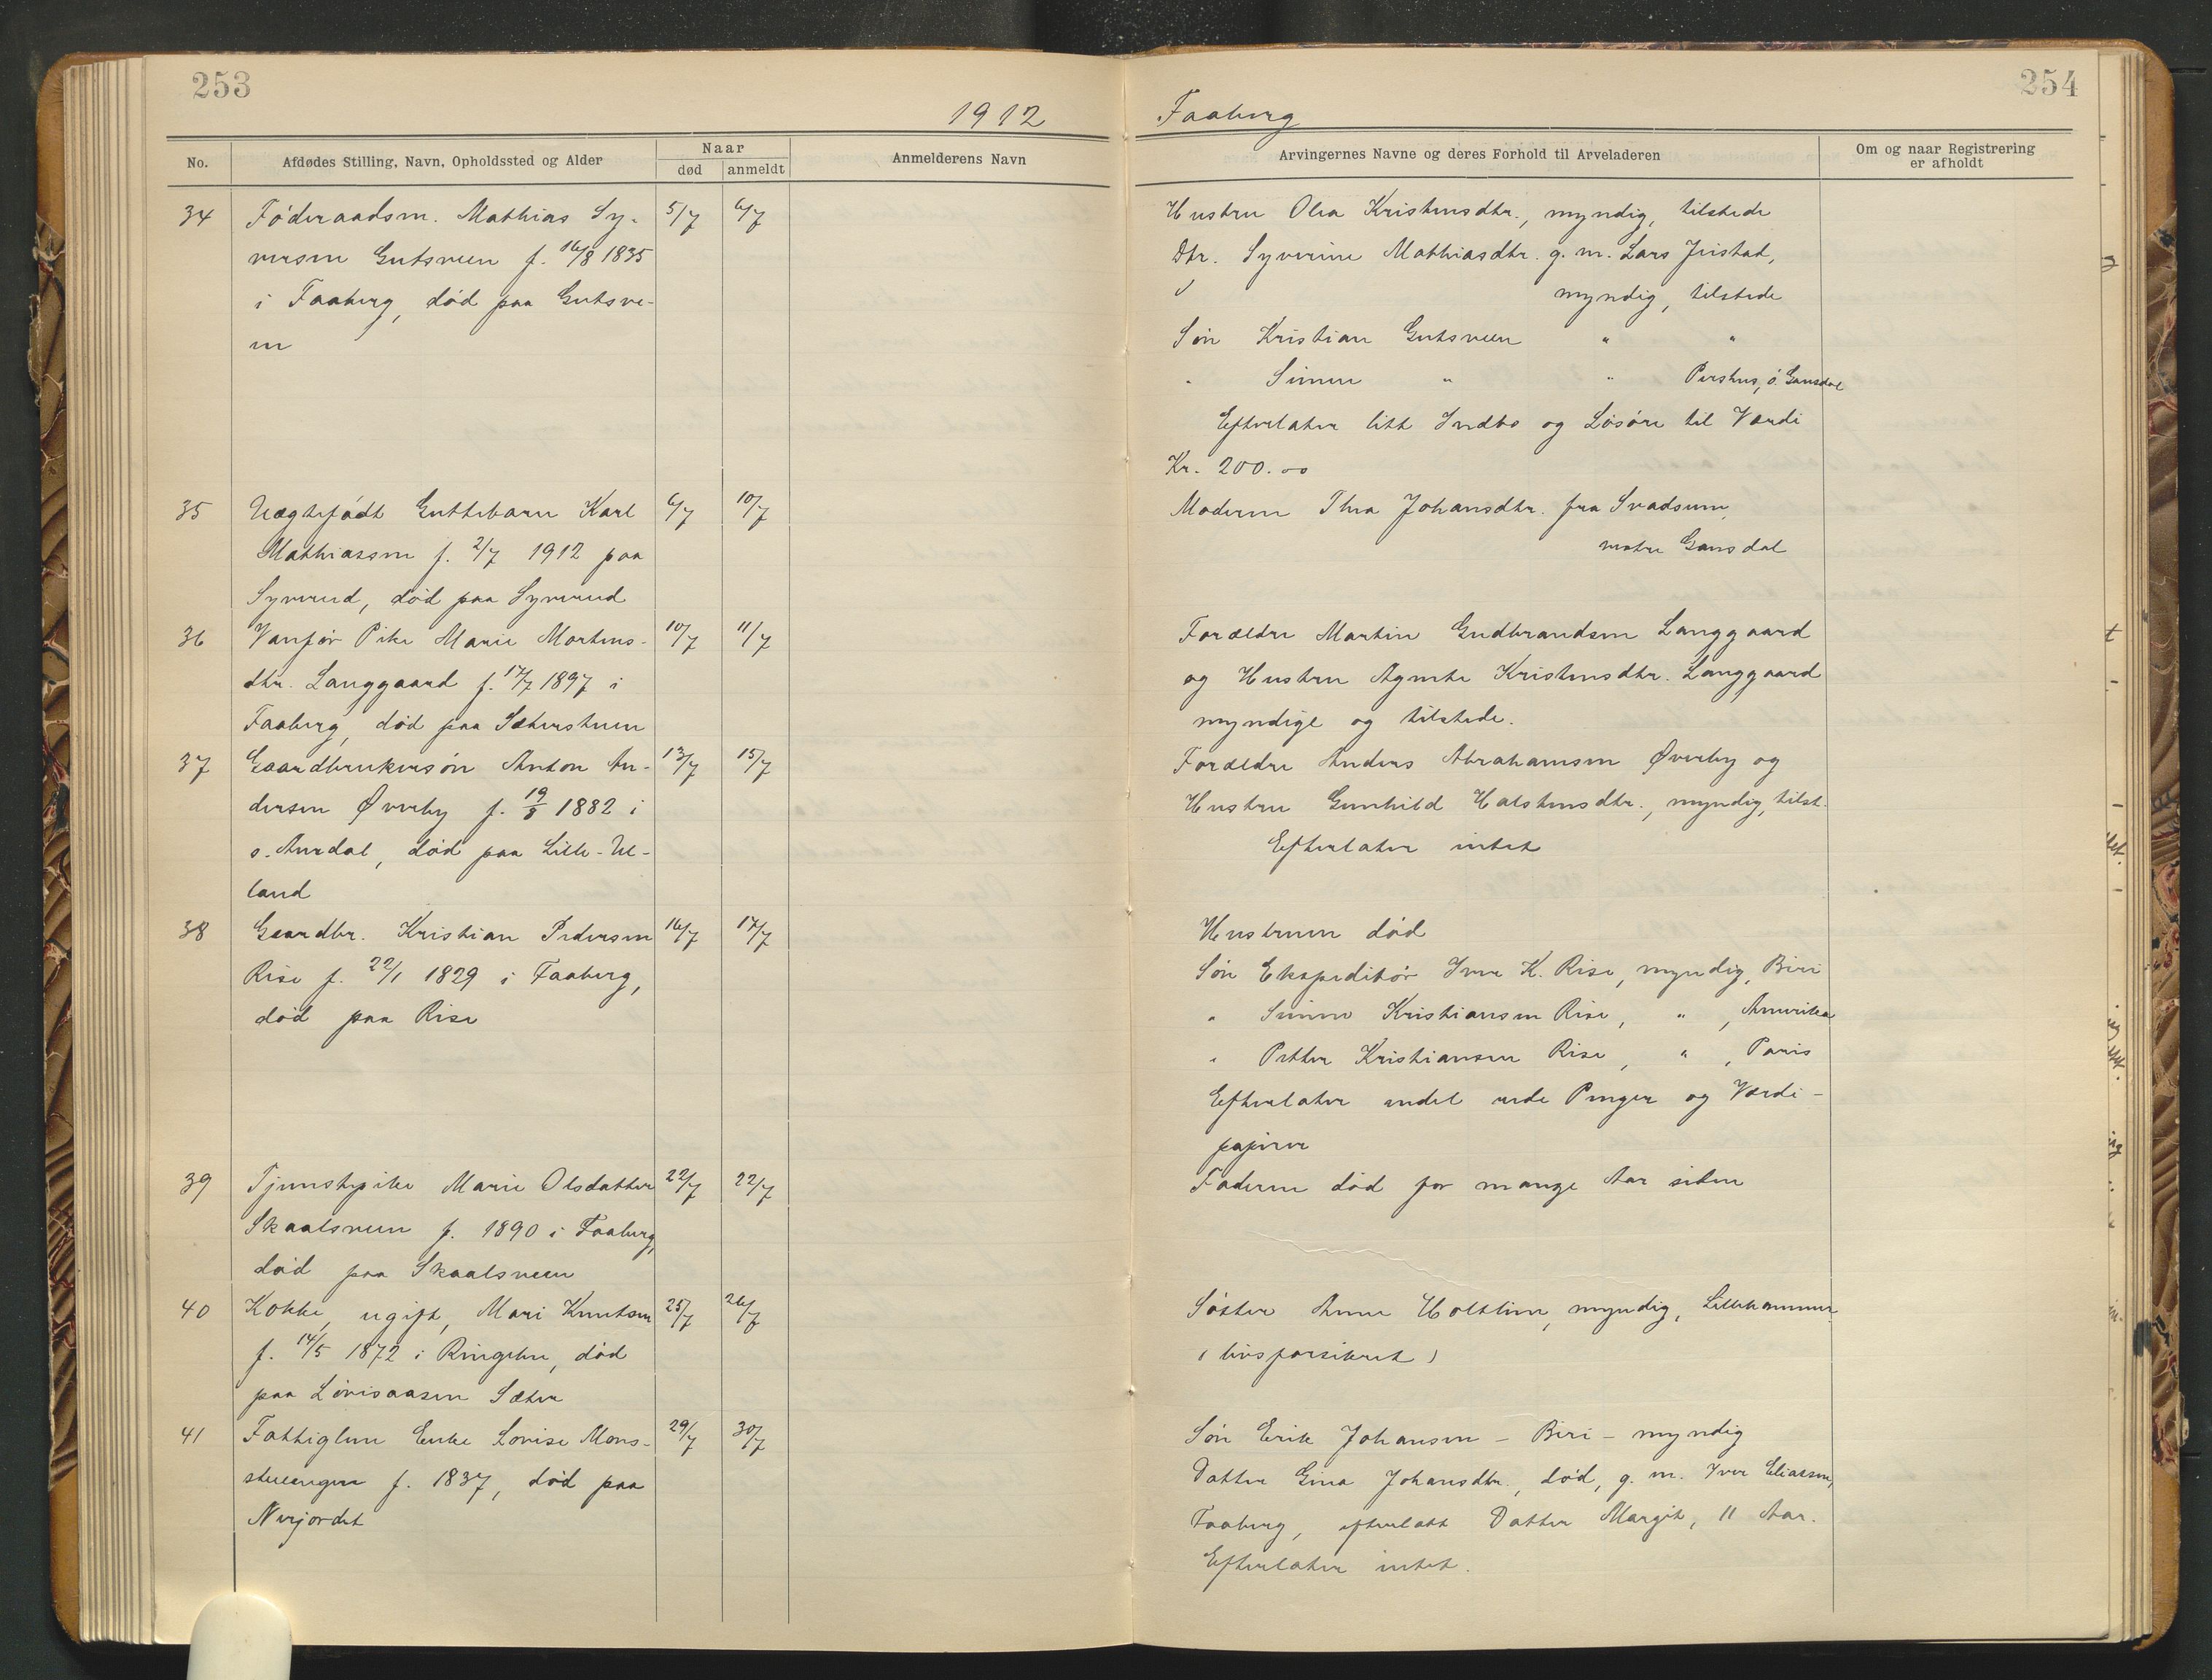 253
254
1912
Faaberg
No.
Afdødes Stilling, Navn, Opholdssted og Alder
Naar
død
anmeldt
Anmelderens Navn
Arvingernes Navne og deres Forhold til Arveladeren
Om og naar Registrering
er afholdt
34 Föderaadsm. Mathias Sy- 5/7 6/7
versen Gutsveen f. 16/8 1835
i Faaberg, död paa Gutsve-
en
Hustru Olea Kristensdtr., myndig, tilstede
Dtr. Syverine Mathiasdtr. g. m. Lars
myndig, tilstede
Sön Kristian Gutsveen " "
" Simen " " ö. Gausdal
Efterlater litt Indbo og Lösöre til Værdi
Kr. 200.00
35 Uægtefödt Guttebarn Karl 6/7 10/7
Mathiassen f. 2/7 1912 paa
Syverud, död paa Syverud
Moderen Thea Johansdtr. fra Svadsum,
vestre Gausdal
36 Vanför Pike Marie Martins- 10/7 11/7
dtr. Langgaard f. 17/7 1897 i
Faaberg, död paa Sæterstuen
Forældre Martin Gudbrandsen Langgaard
og Hustru Agnete Kristensdtr. Langgaard
myndige og tilstede.
37 Gaardbrukersön Anton An- 13/7 15/7
dersen Øverby f. 19/8 1882 i
s. Aurdal, död paa Lille-Ul-
land
Forældre Anders Abrahamsen Øverby og
Hustru Gunhild Halstensdtr., myndig, tilst.
Efterlater intet
38 Gaardbr. Kristian Pedersen 16/7 17/7
Rise f. 22/1 1829 i Faaberg,
död paa Rise
Hustruen död
Sön Ekspeditör Iver K. Rise, myndig, Biri
" Simen Kristiansen Rise, " , Amerika
" Petter Kristiansen Rise, " , Paris
Efterlater endel rede Penger og Værdi-
papirer
39 Tjenestepike Marie Olsdatter 22/7 22/7
Skaalsveen f. 1890 i Faaberg,
död paa Skaalsveen
Faderen död for mange Aar siden
40 Kokke, ugift, Mari Knutsen 25/7 26/7
f. 14/5 1872 i Ringebu, död
paa Lövisaasen Sæter
Söster Anne Holtlien, myndig, Lillehammer
(livsforsikret)
41 Fattiglem Enke Lovise Mons- 29/7 30/7
stuengen f. 1837, död paa
Nerjordet
Sön Erik Johansen – Biri – myndig
Datter Gina Johansdtr., död, g. m. Iver Eliassen,
Faaberg, efterlatt Datter Margit, 11 Aar.
Efterlater intet.